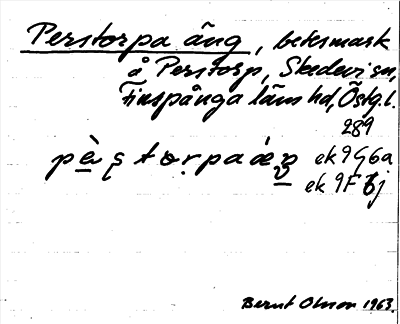 Perstorpa äng, betesmark
å Perstorp, Skedevi sn,
Finspånga läns hd, Östg.l.
289
ek 9G6a
ek 9F6j
Bernt Olsson 1963.